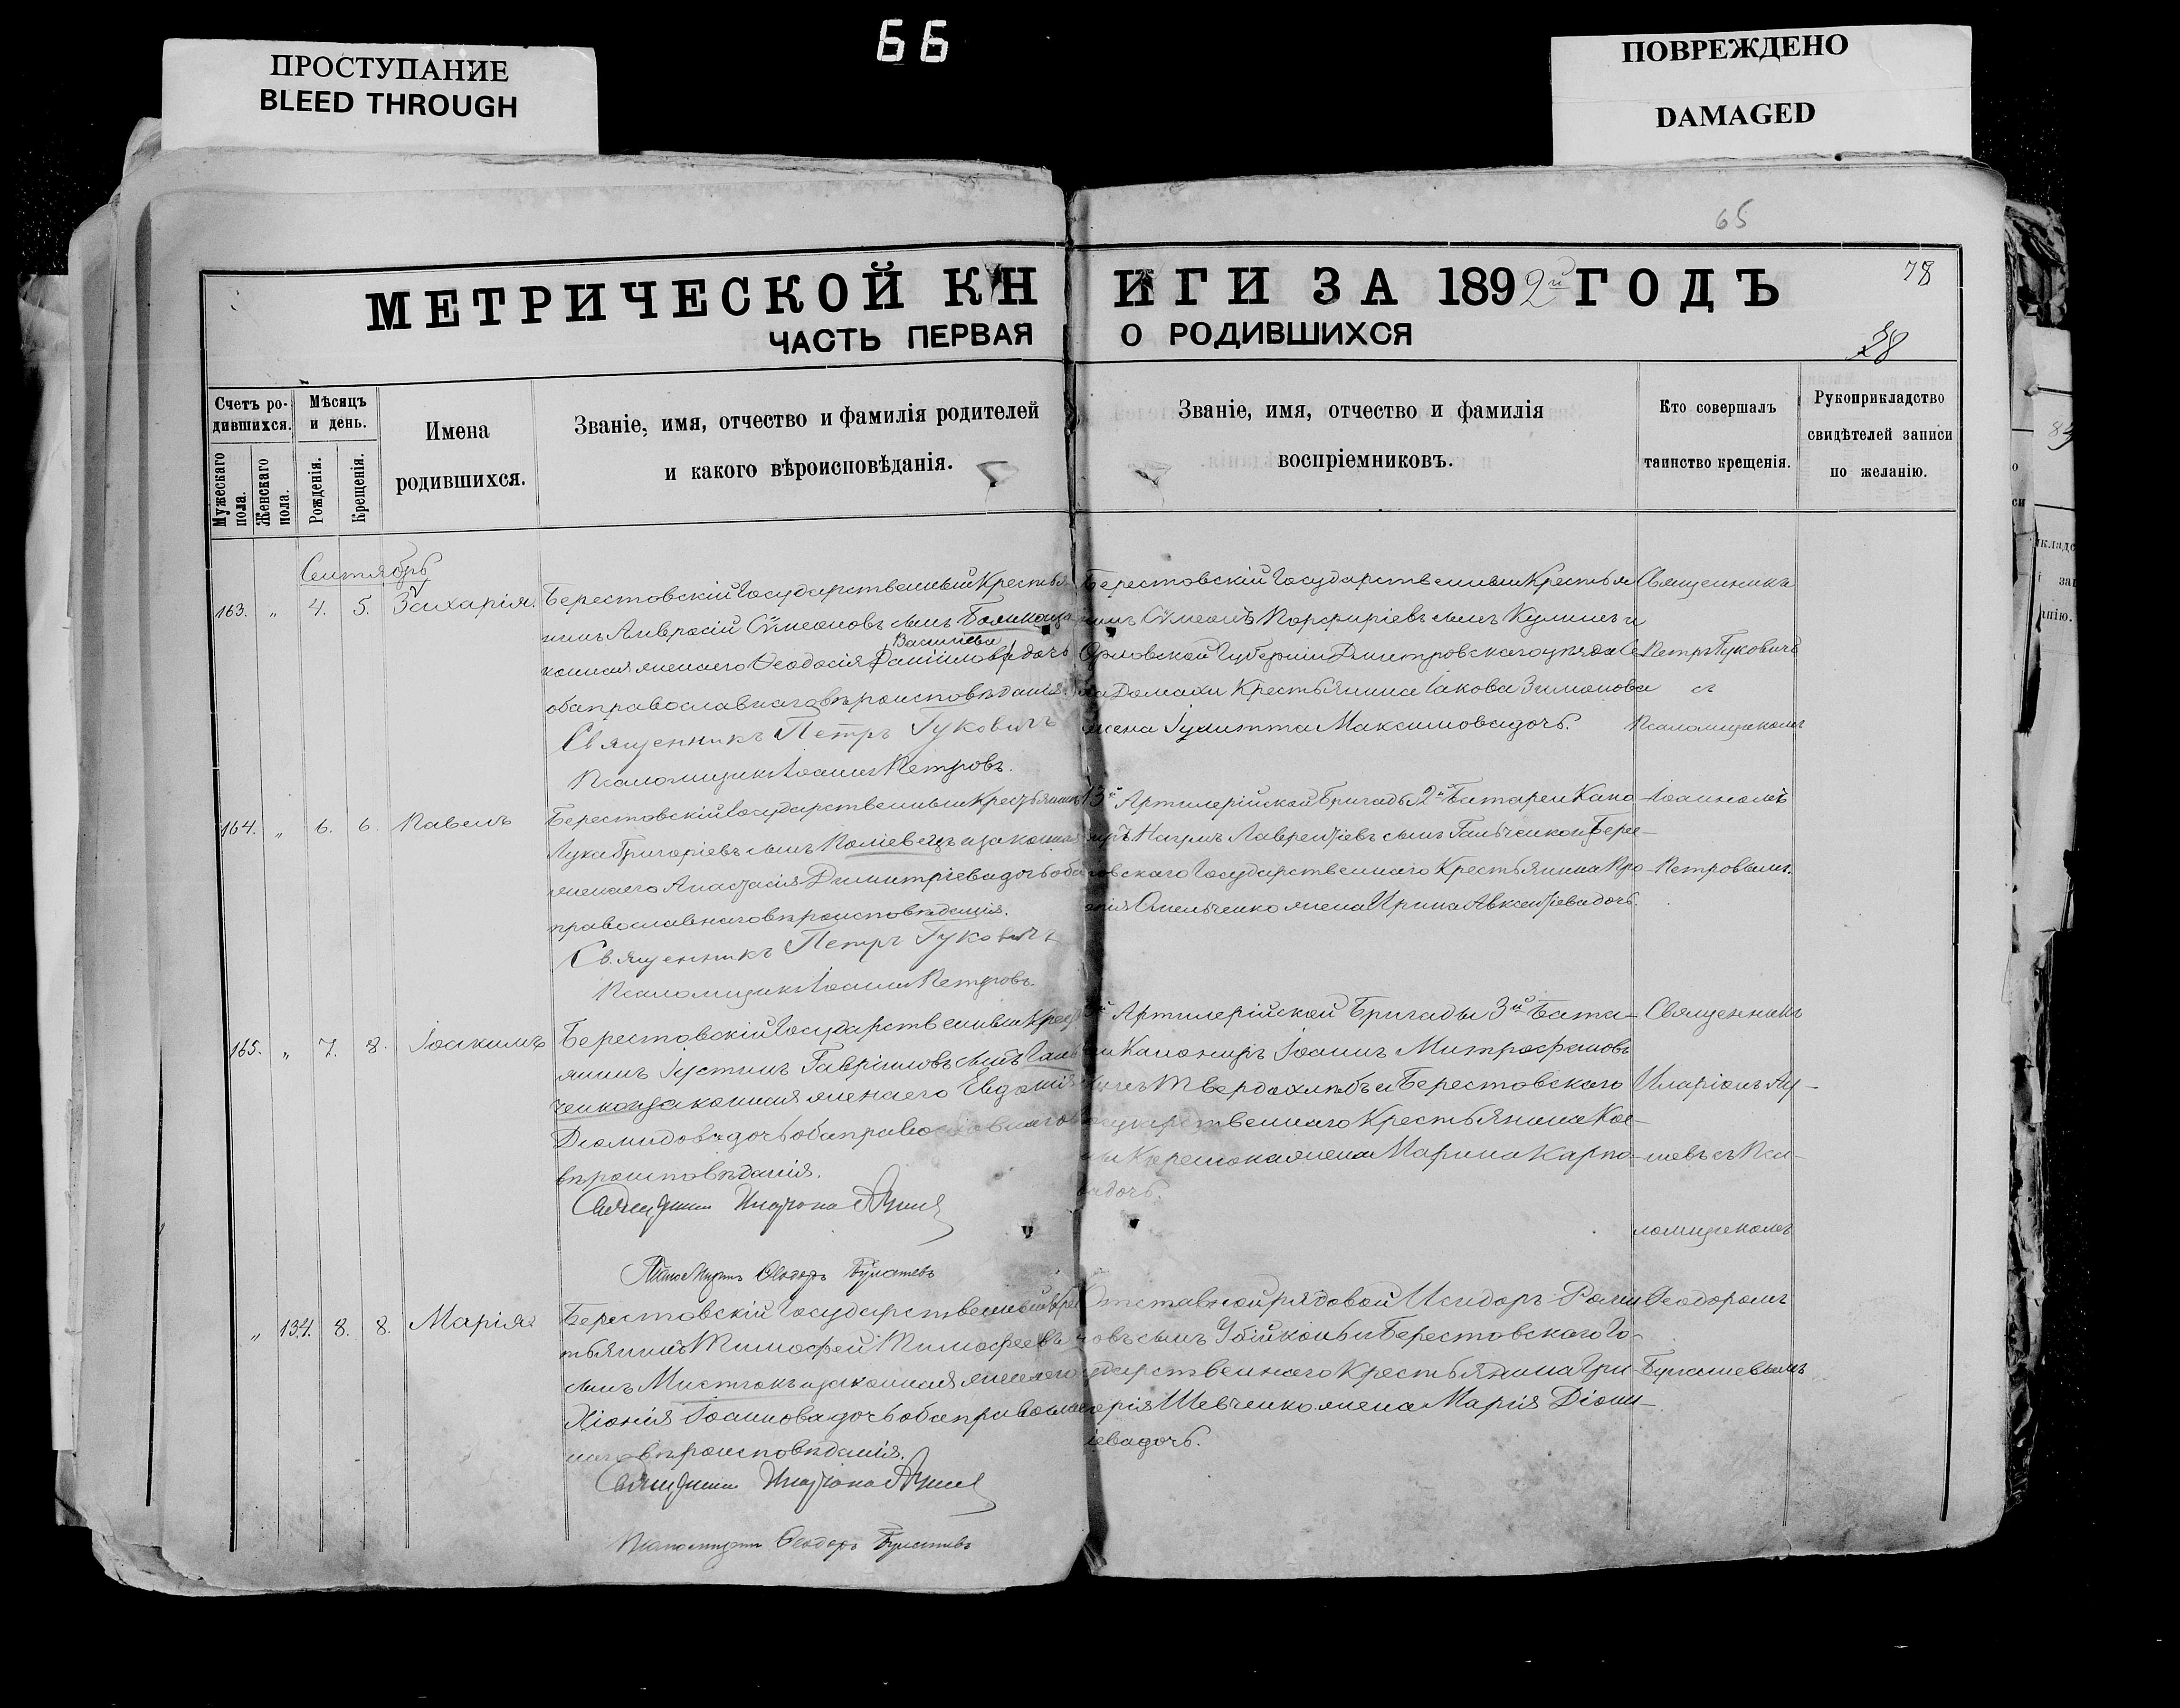 66
ПРОСТУПАНИЕ
BLEED THROUGH
ПОВРЕЖДЕНО
DAMAGED
65
МЕТРИЧЕСКОЙ КНИГИ ЗА 1892й ГОДЪ
78
ЧАСТЬ ПЕРВАЯ О РОДИВШИХСЯ
38
Счетъ ро-
дившихся.
Мужескаго пола.
Женскаго пола.
Мѣсяцъ
и день.
Рожденія.
Крещенія.
Имена
родившихся.
Званіе, имя, отчество и фамилія родителей
и какого вѣроисповѣданія.
Званіе, имя, отчество и фамилія
воспріемниковъ.
Кто совершалъ
таинство крещенія.
Рукоприкладство
свидѣтелей записи
по желанію.
Сентябрь
163. " 4. 5. Захарія.
Берестовскій Государственный Крестья
нинъ Амвросій Сѵмеоновъ сынъ
Васильева
конная жена его Ѳеодосія дочь
оба православнаго вѣроисповѣданія.
Священникъ Петръ Гуковичъ
Псаломщикъ Іоаннъ Петровъ.
Берестовскій Государственный Крестья
нинъ Сѵмеонъ Порфиріевъ сынъ Кулишъ и
Орловской Губерніи Дмитровскаго уѣзда Се
ла Домахи Крестьянина Іакова Зиманова
жена Іулитта Максимова дочь.
Священникъ
Петръ Гуковичъ
съ
Псаломщикомъ
164. " 6. 6. Павелъ
Берестовскій Государственный Крестьянинъ
Лука Григоріевъ сынъ и законная
жена его Анастасія Димитріева дочь оба
православнаго вѣроисповѣданія.
Священникъ Петръ Гуковичъ
Псаломщикъ Іоаннъ Петровъ.
13й Артилерійской Бригады 2й Батареи Кано
ниръ Наумъ Лаврентіевъ сынъ Гальченко и Берес-
товскаго Государственнаго Крестьянина Про
копія Омельченко жена Ирина Авксентіева дочь.
Іоанномъ
Петровымъ.
165. " 7. 8. Іоакимъ
Берестовскій Государственный Крестья
янинъ Іустинъ Гавріиловъ сынъ Галь
ченко и законная жена его Евдокія
Діомидова дочь оба православнаго
вѣроисповѣданія.
Священникъ
Псаломщикъ Ѳеодоръ
Артилерійской Бригады 3й Бата-
реи Канониръ Іоаннъ Митрофановъ
сынъ Твердохлѣбъ и Берестовскаго
Государственнаго Крестьянина Кос-
жена Марина Карпо-
ва дочь.
Священникъ
Иларіонъ
съ Пса-
ломщикомъ
" 134. 8. 8. Марія
Берестовскій Государственный Крес
тьянинъ Тимофей Тимофеевъ
сынъ и законная жена его
Хіонія Іоаннова дочь оба православ
наго вѣроисповѣданія.
Священникъ
Псаломщикъ Ѳеодоръ
Отставной рядовой Исидоръ Рома
новъ сынъ и Берестовскаго Го-
сударственнаго Крестьянина Гри
горія Шевченко жена Марія Діони-
сіева дочь.
Ѳеодоромъ